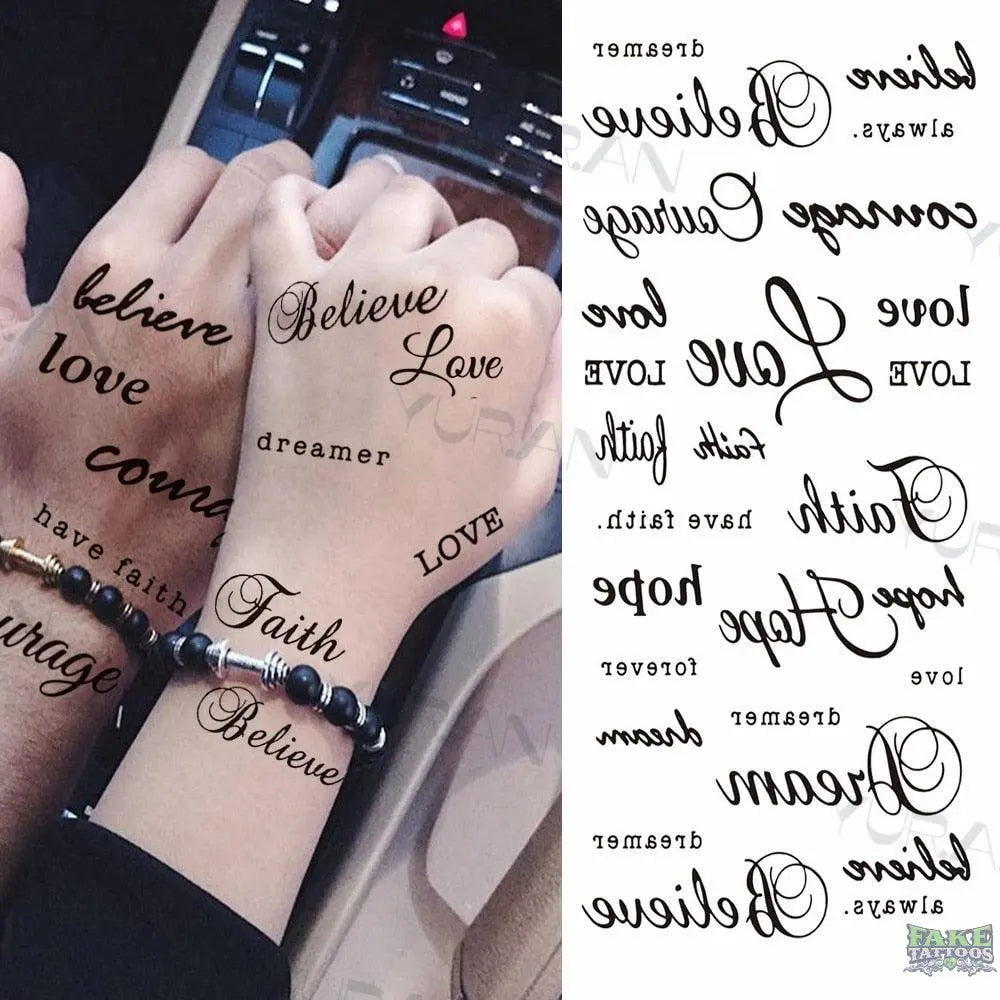 believe
love
coura
have faith
urage
Believe
Love
dreamer
LOVE
Faith
Believe
YURAN
dreamer
Believe believe
always.
Courage courage
love Love love
LOVE LOVE
faith faith
have faith. Faith
hope Hope hope
forever love
dream dreamer
Dream
dreamer
Believe believe
always.
YURAN
FAKE
TATTOOS